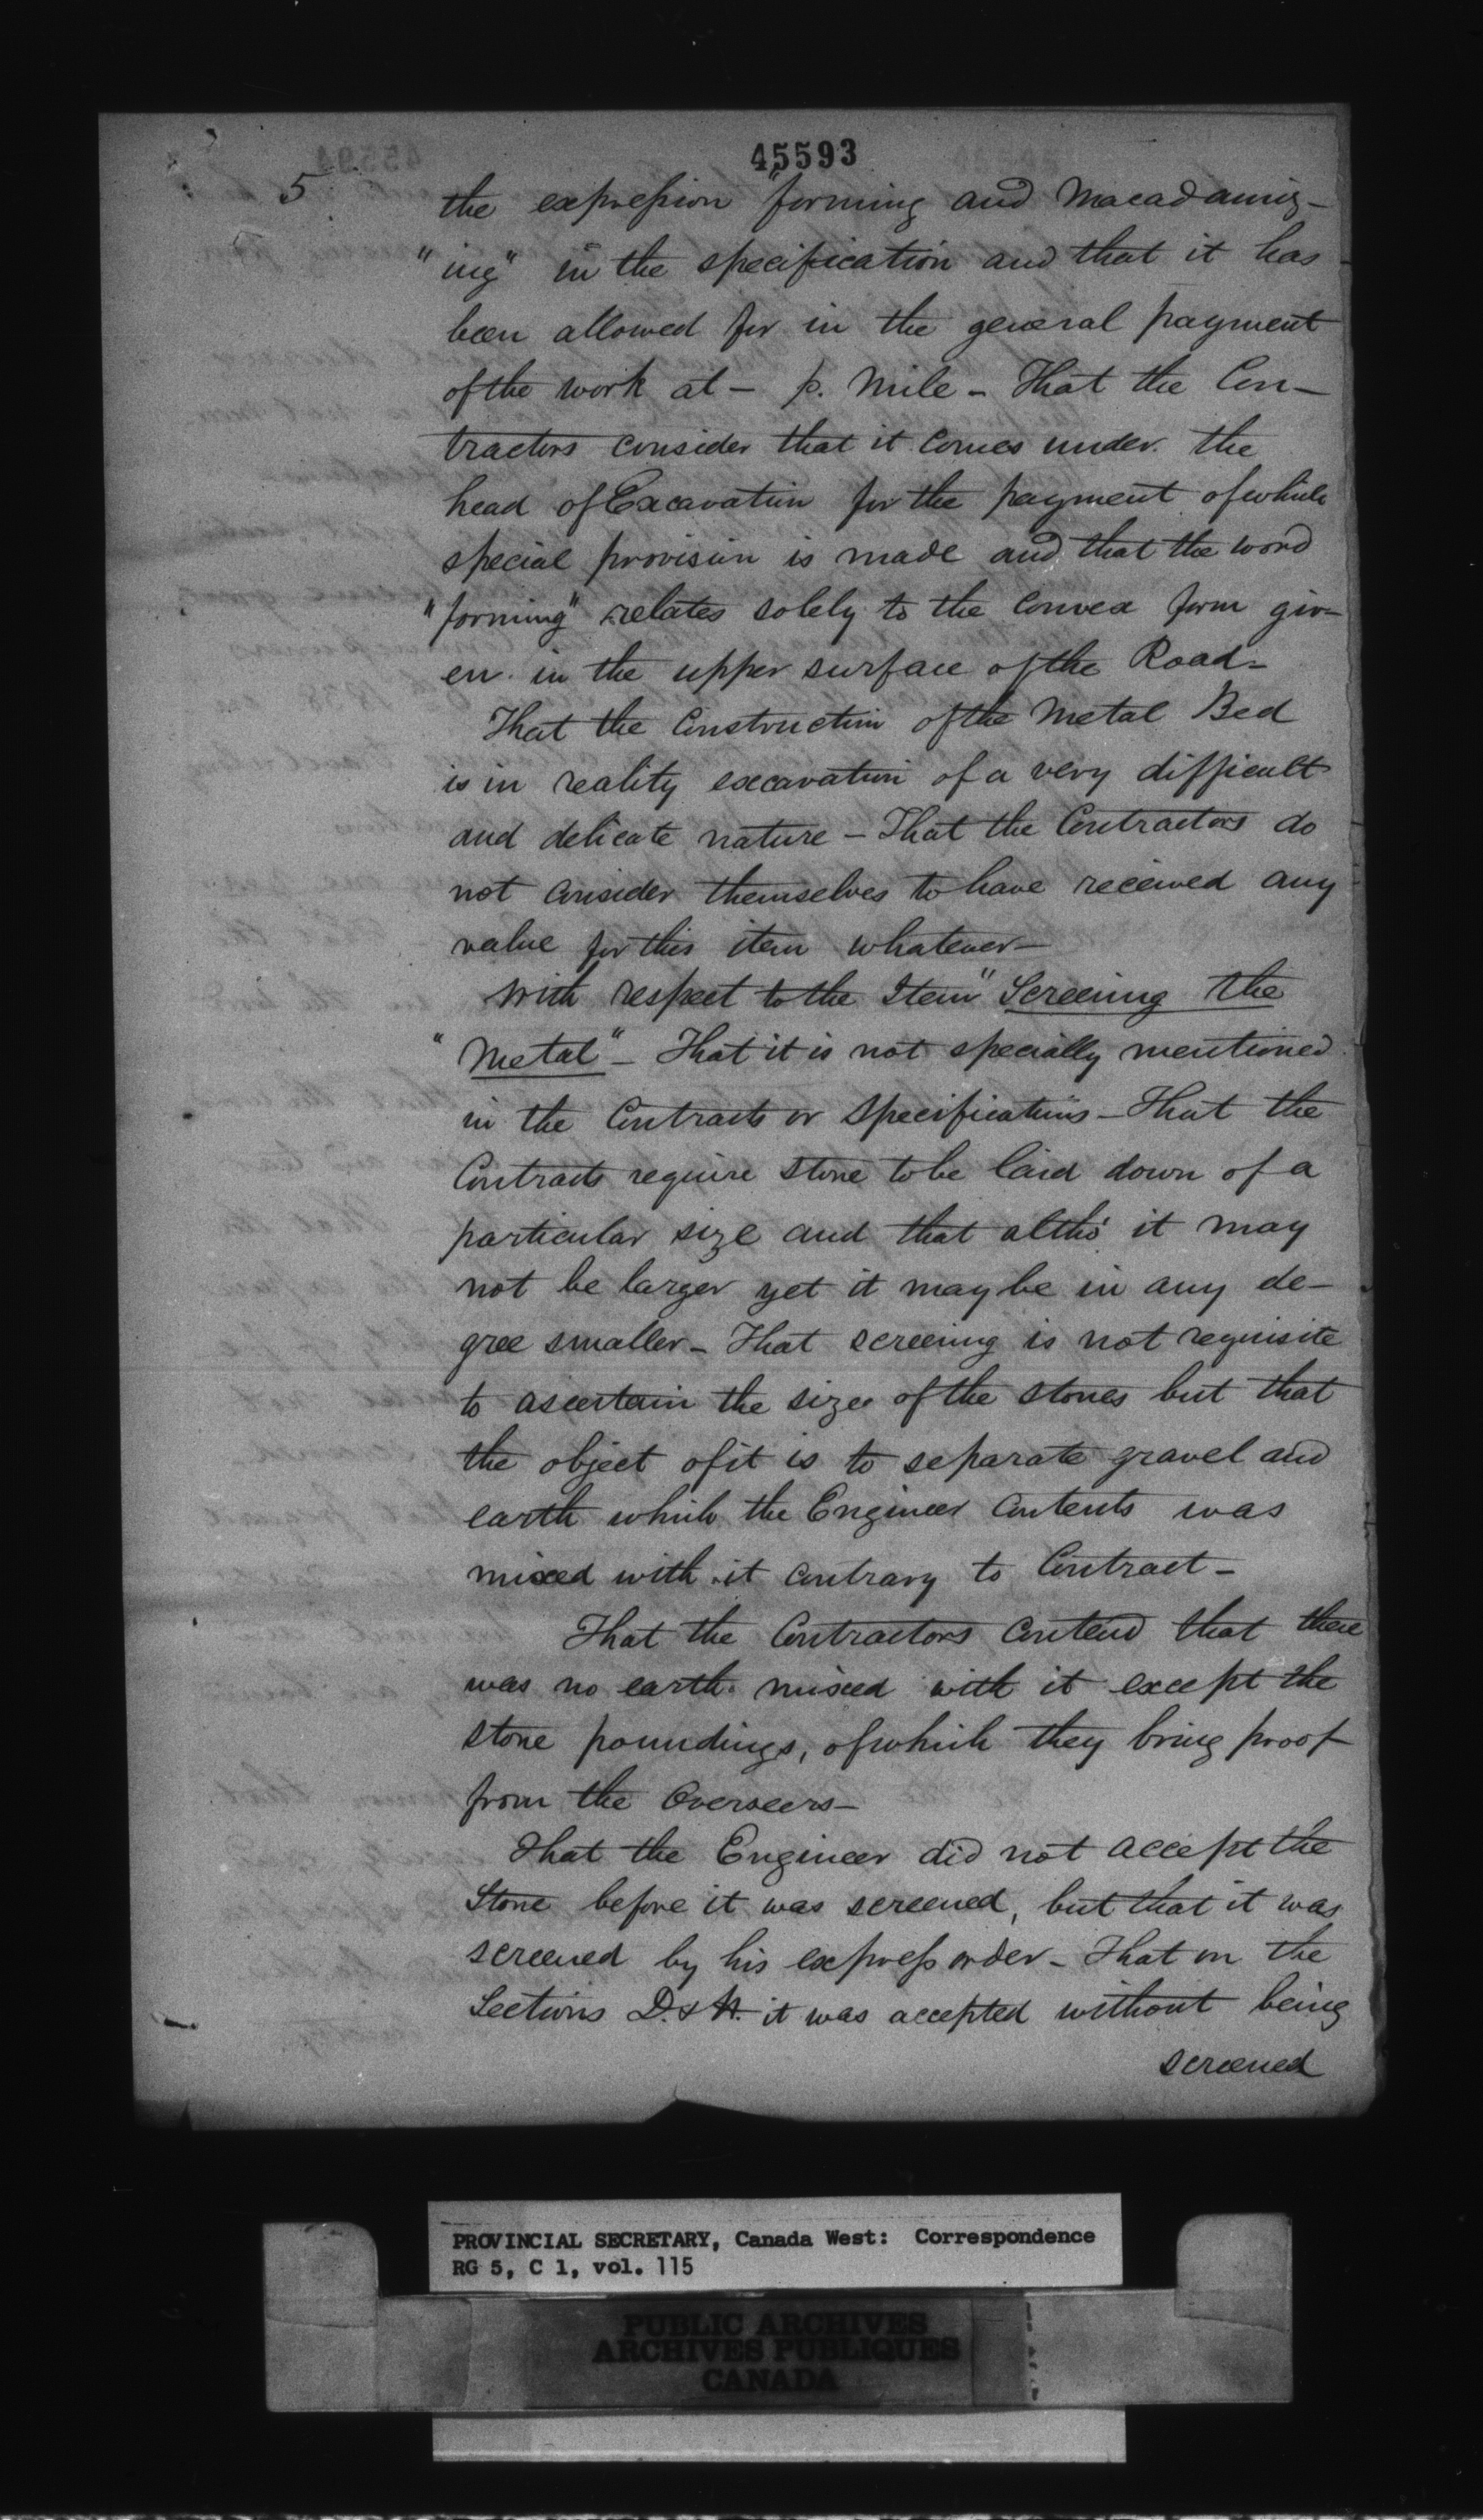 45593
5
the expression "forming and Macadamiz-
"ing" in the specification and that it has
been allowed for in the general payment
of the work at — p. Mile — That the Con-
tractors consider that it comes under the
head of Excavation for the payment of which
special provision is made and that the word
"forming" relates solely to the convex form giv-
en in the upper surface of the Road-
That the Construction of the Metal Bed
is in reality excavation of a very difficult
and delicate nature — That the Contractors do
not consider themselves to have received any
value for this item whatever—
With respect to the Item "Screening the
"Metal" — That it is not specially mentioned
in the Contracts or Specifications — That the
Contracts require Stone to be laid down of a
particular size and that altho' it may
not be larger yet it may be in any de-
gree smaller — That screening is not requisite
to ascertain the size of the stones but that
the object of it is to separate gravel and
earth which the Engineer contents was
mixed with it contrary to Contract —
That the Contractors contend that there
was no earth mixed with it except the
stone poundings, of which they bring proof
from the Overseers—
That the Engineer did not accept the
Stone before it was screened, but that it was
screened by his express order — That on the
Sections D. & H. it was accepted without being
screened
PROVINCIAL SECRETARY, Canada West: Correspondence
RG 5, C 1, vol. 115
PUBLIC ARCHIVES
ARCHIVES PUBLIQUES
CANADA